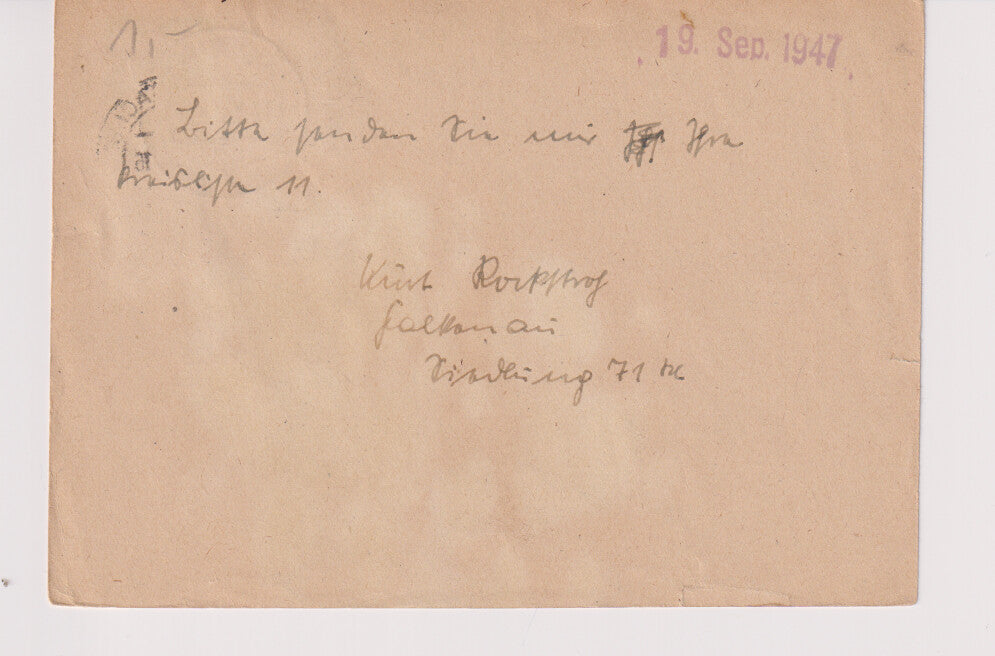 1,-
19. Sep. 1947
Bitte senden Sie mir Ihre
Preisliste 11.
Kurt Rockstroh
Falkenau
Siedlung 71